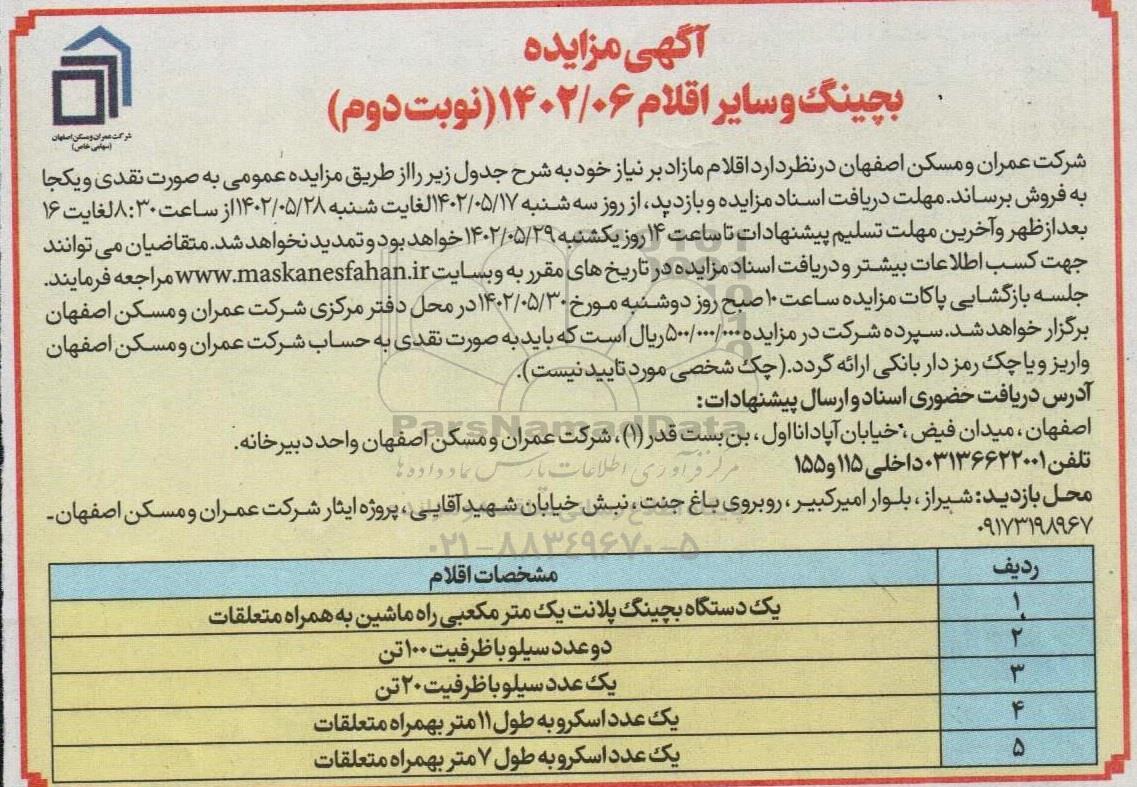 آگهی مزایده
بچینگ و سایر اقلام ۱۴۰۲/۰۶ (نوبت دوم)
شرکت عمران و مسکن اصفهان
(سهامی خاص)
شرکت عمران و مسکن اصفهان در نظر دارد اقلام مازاد بر نیاز خود به شرح جدول زیر را از طریق مزایده عمومی به صورت نقدی و یکجا
به فروش برساند. مهلت دریافت اسناد مزایده و بازدید، از روز سه شنبه ۱۴۰۲/۰۵/۱۷ لغایت شنبه ۱۴۰۲/۰۵/۲۸ از ساعت ۸:۳۰ لغایت ۱۶
بعدازظهر و آخرین مهلت تسلیم پیشنهادات تا ساعت ۱۴ روز یکشنبه ۱۴۰۲/۰۵/۲۹ خواهد بود و تمدید نخواهد شد. متقاضیان می توانند
جهت کسب اطلاعات بیشتر و دریافت اسناد مزایده در تاریخ های مقرر به وبسایت www.maskanesfahan.ir مراجعه فرمایند.
جلسه بازگشایی پاکات مزایده ساعت ۱۰ صبح روز دوشنبه مورخ ۱۴۰۲/۰۵/۳۰ در محل دفتر مرکزی شرکت عمران و مسکن اصفهان
برگزار خواهد شد. سپرده شرکت در مزایده ۵۰۰/۰۰۰/۰۰۰ ریال است که باید به صورت نقدی به حساب شرکت عمران و مسکن اصفهان
واریز و یا چک رمز دار بانکی ارائه گردد. (چک شخصی مورد تایید نیست).
آدرس دریافت حضوری اسناد و ارسال پیشنهادات:
اصفهان، میدان فیض، خیابان آپادانا اول، بن بست قدر (۱)، شرکت عمران و مسکن اصفهان واحد دبیرخانه.
تلفن ۰۳۱۳۶۶۲۲۰۰۱ داخلی ۱۱۵ و ۱۵۵
محل بازدید: شیراز، بلوار امیرکبیر، روبروی باغ جنت، نبش خیابان شهید آقایی، پروژه ایثار شرکت عمران و مسکن اصفهان-
۰۹۱۷۳۱۹۸۹۶۷
ParsNamadData
مرکز فرآوری اطلاعات پارس نماد داده ها
۰۲۱-۸۸۳۴۹۶۷۰-۵
ردیف مشخصات اقلام
۱ یک دستگاه بچینگ پلانت یک متر مکعبی راه ماشین به همراه متعلقات
۲ دو عدد سیلو با ظرفیت ۱۰۰ تن
۳ یک عدد سیلو با ظرفیت ۲۰ تن
۴ یک عدد اسکرو به طول ۱۱ متر بهمراه متعلقات
۵ یک عدد اسکرو به طول ۷ متر بهمراه متعلقات